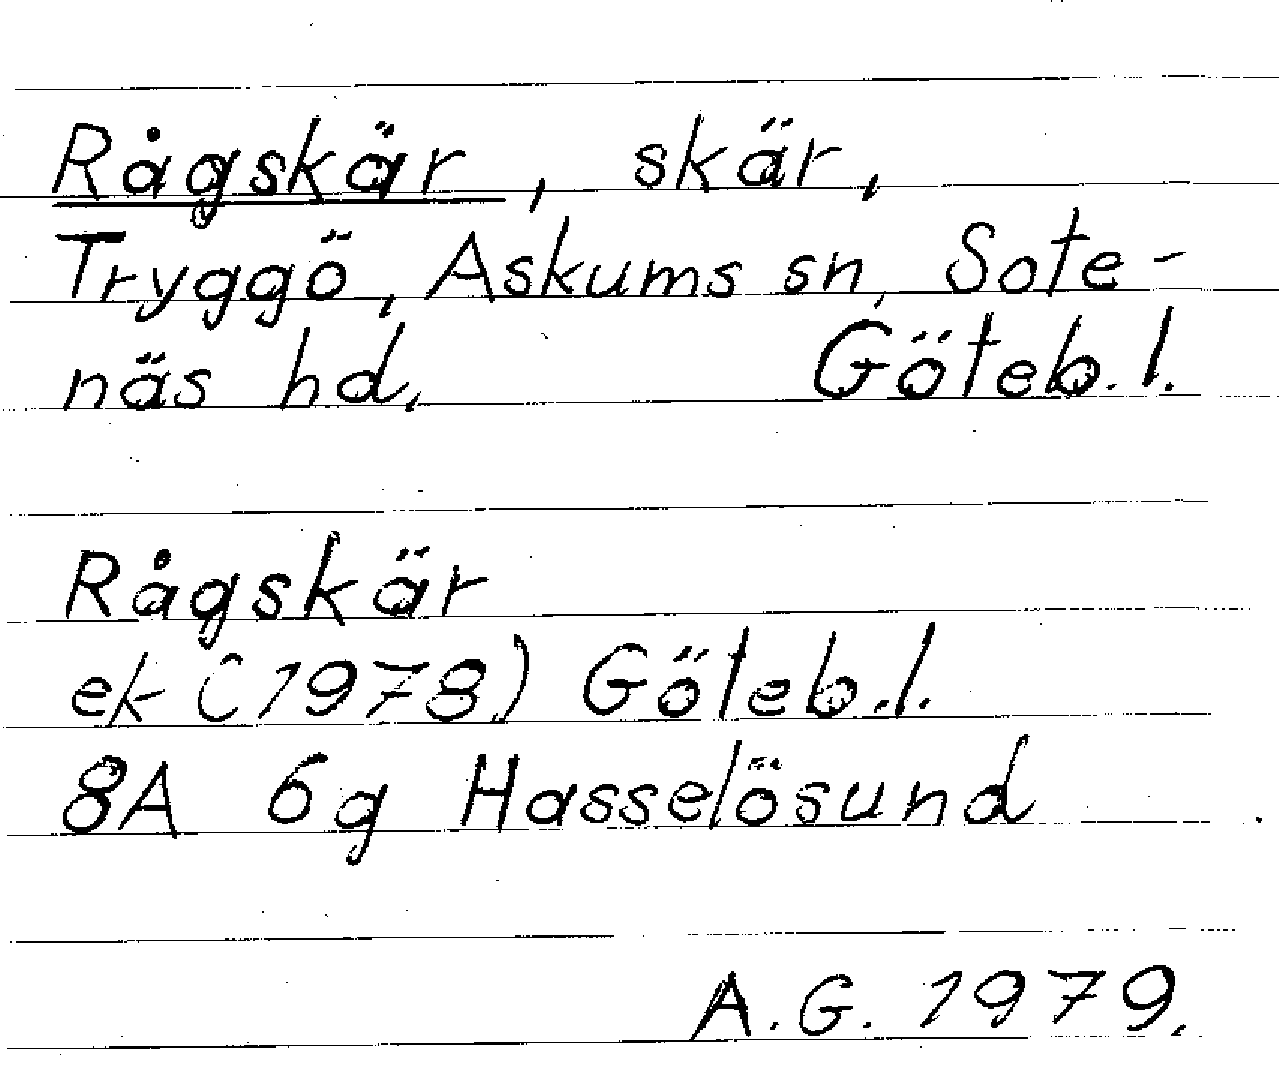 Rågskär, skär,
Tryggö, Askums sn, Sote-
näs hd, Göteb.l.
Rågskär
ek (1978) Göteb.l.
8A 6g Hasselösund
A.G. 1979.